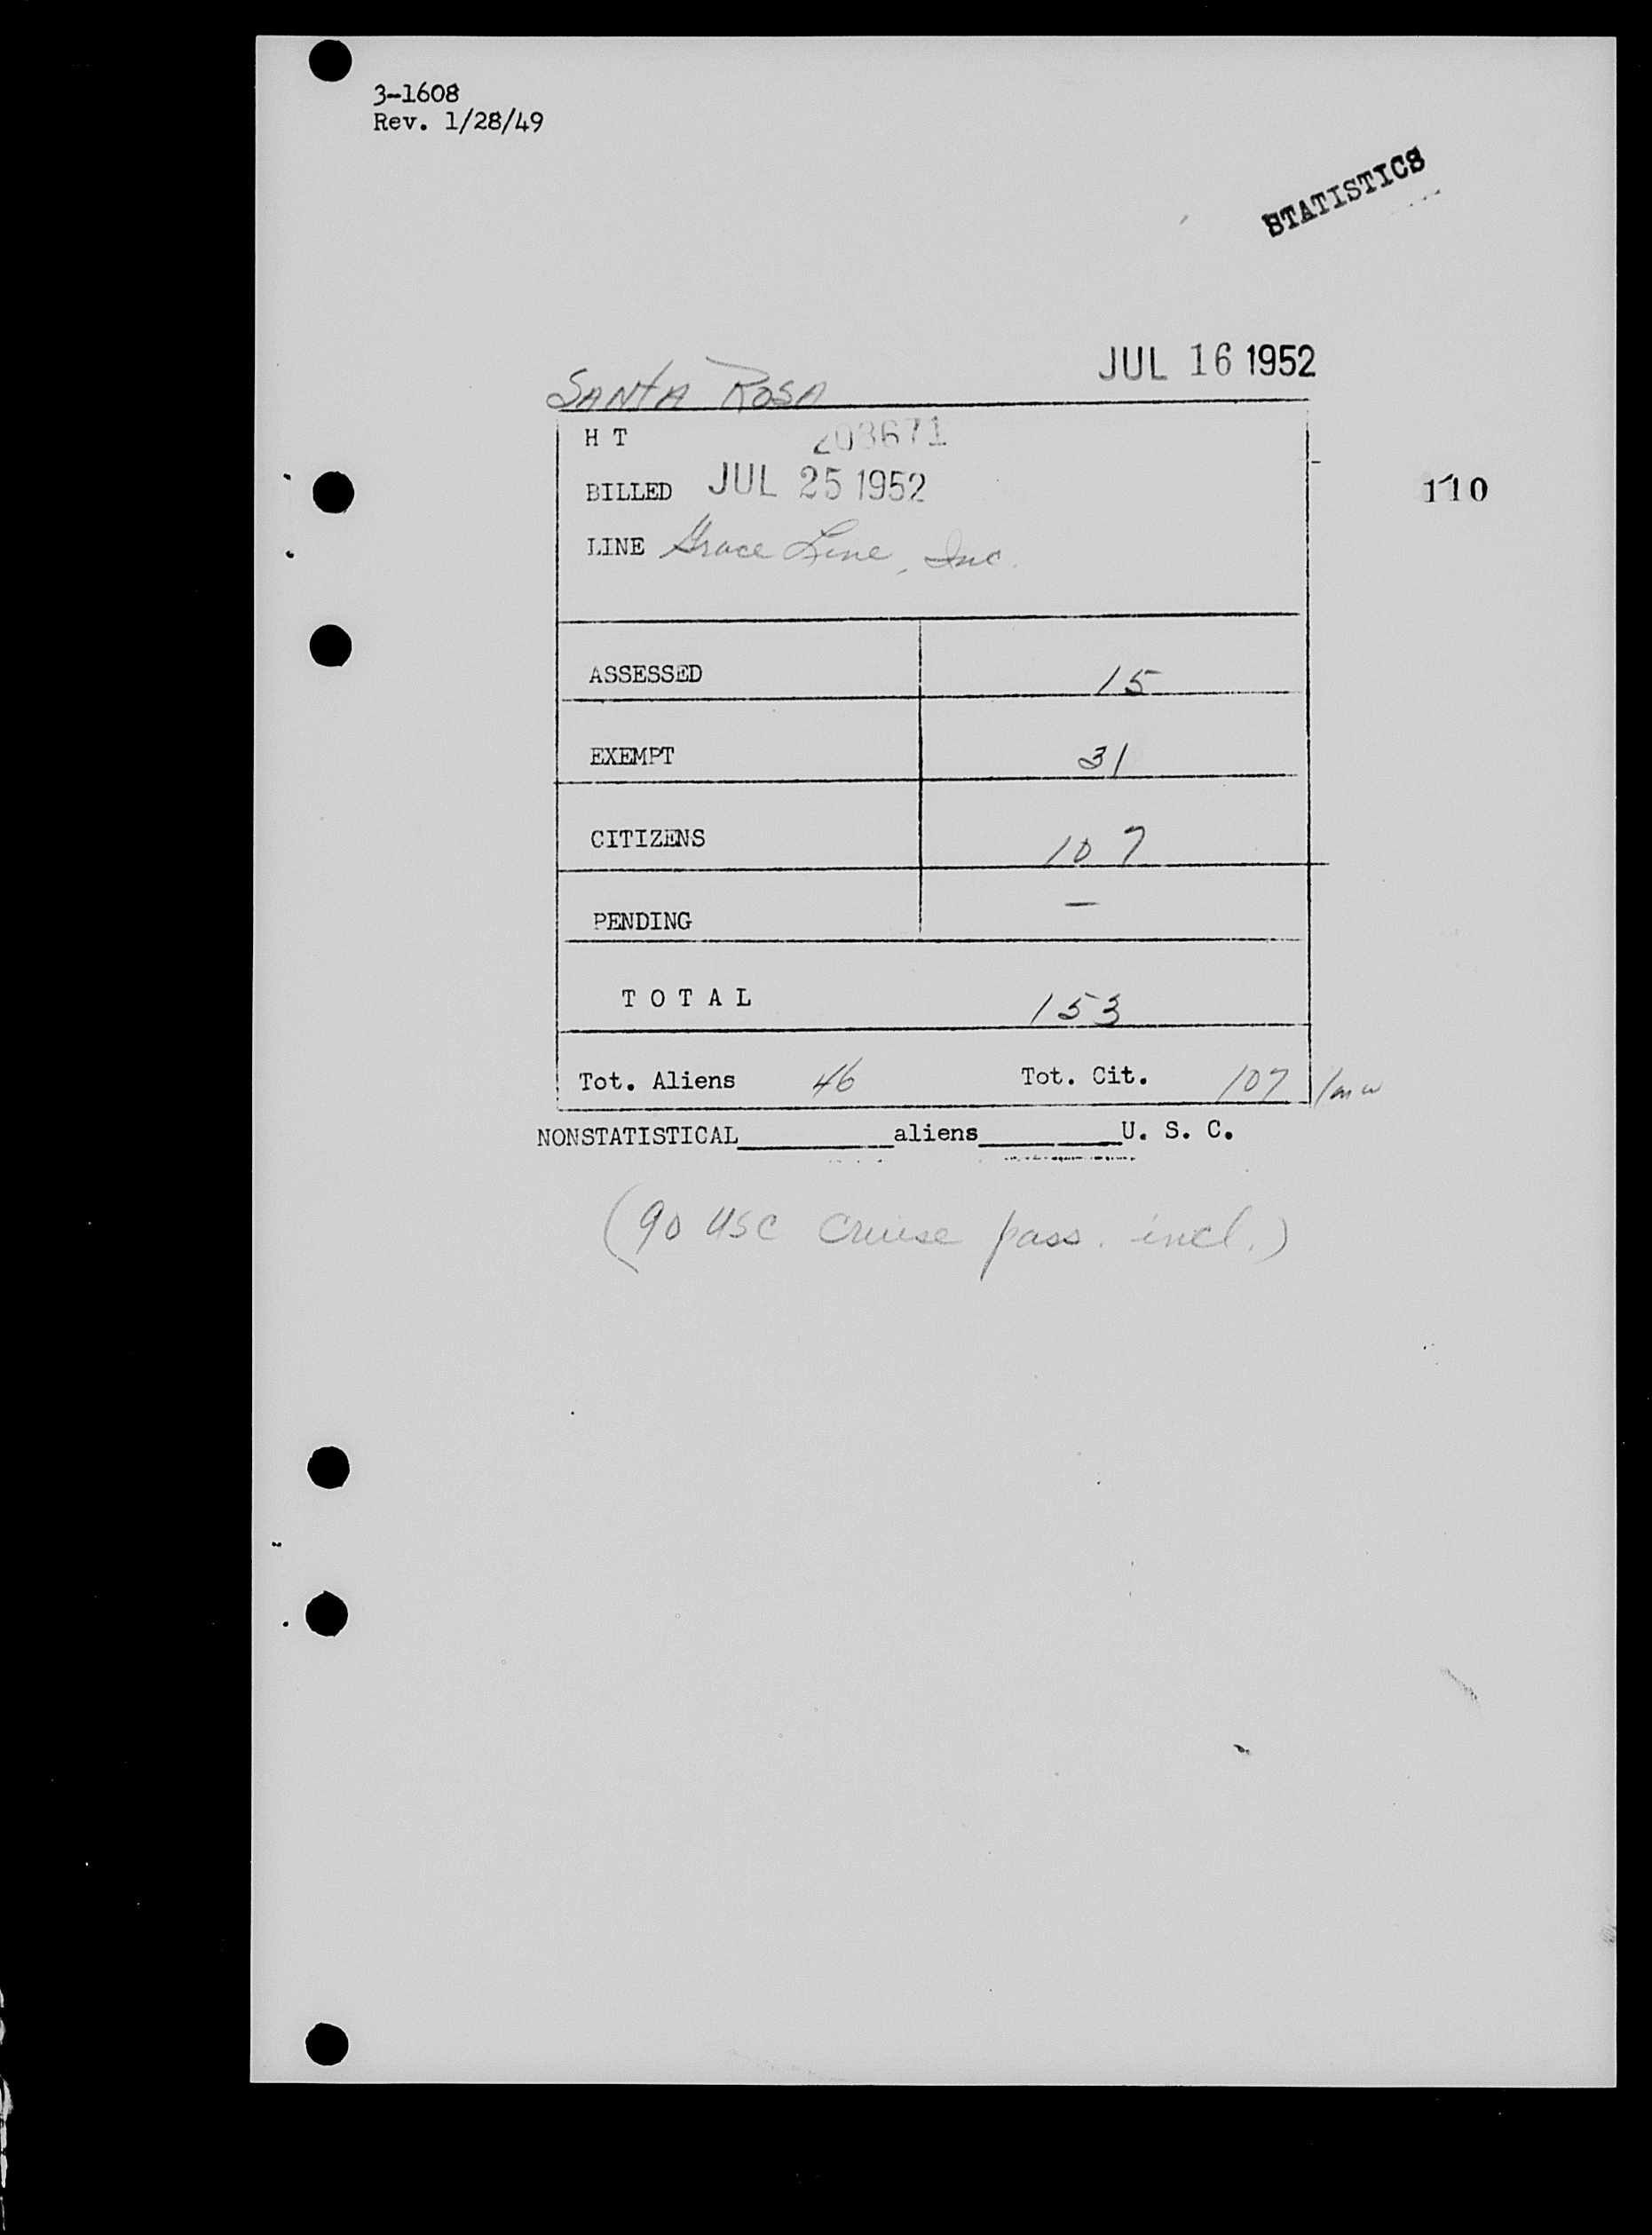 3-1608
Rev. 1/28/49
STATISTICS
JUL 16 1952
SANTA ROSA
H T 203671
BILLED JUL 25 1952
110
LINE Grace Line, Inc.
ASSESSED 15
EXEMPT 31
CITIZENS 107
PENDING —
TOTAL 153
Tot. Aliens 46 Tot. Cit. 107
NONSTATISTICAL__________aliens__________U. S. C.
(90 USC Cruise pass. incl.)